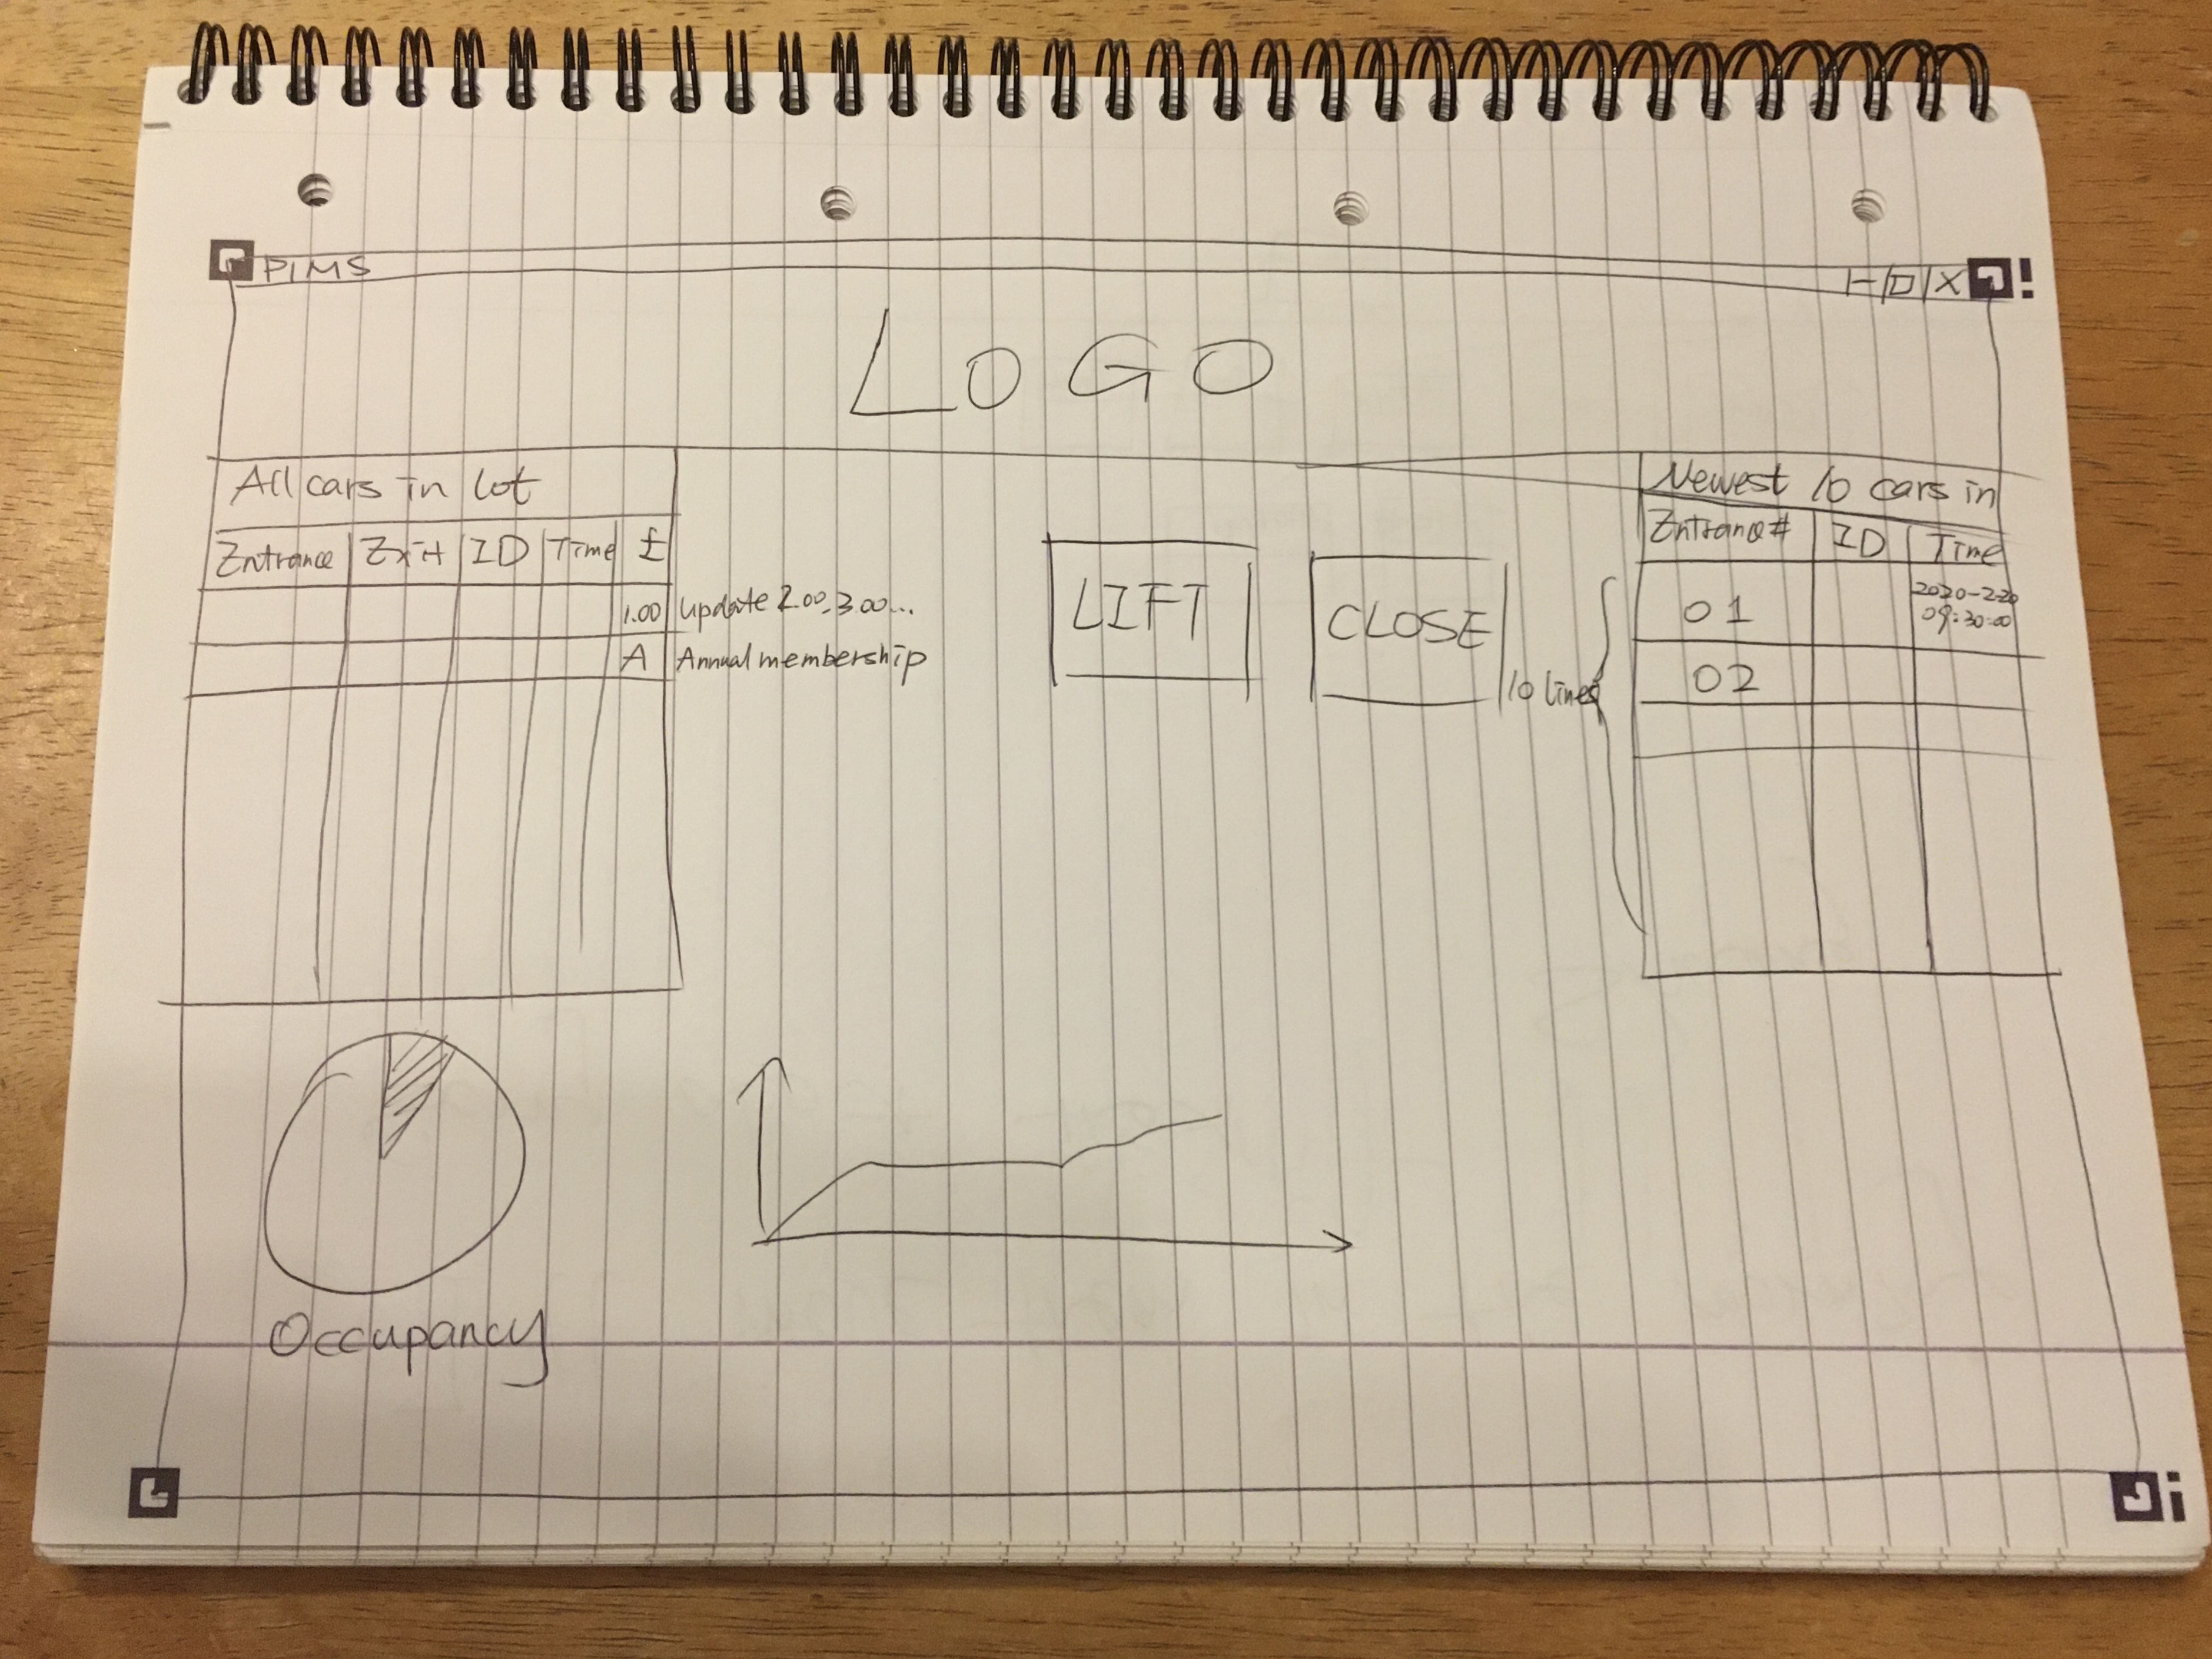 PIMS
LOGO
All cars in lot
Entrance Exit ID Time £
1.00 update 2.00, 3.00...
A Annual membership
LIFT
CLOSE
10 lines
Newest 10 cars in
Entrance# ID Time
01 2020-2-20
09:30:00
02
Occupancy